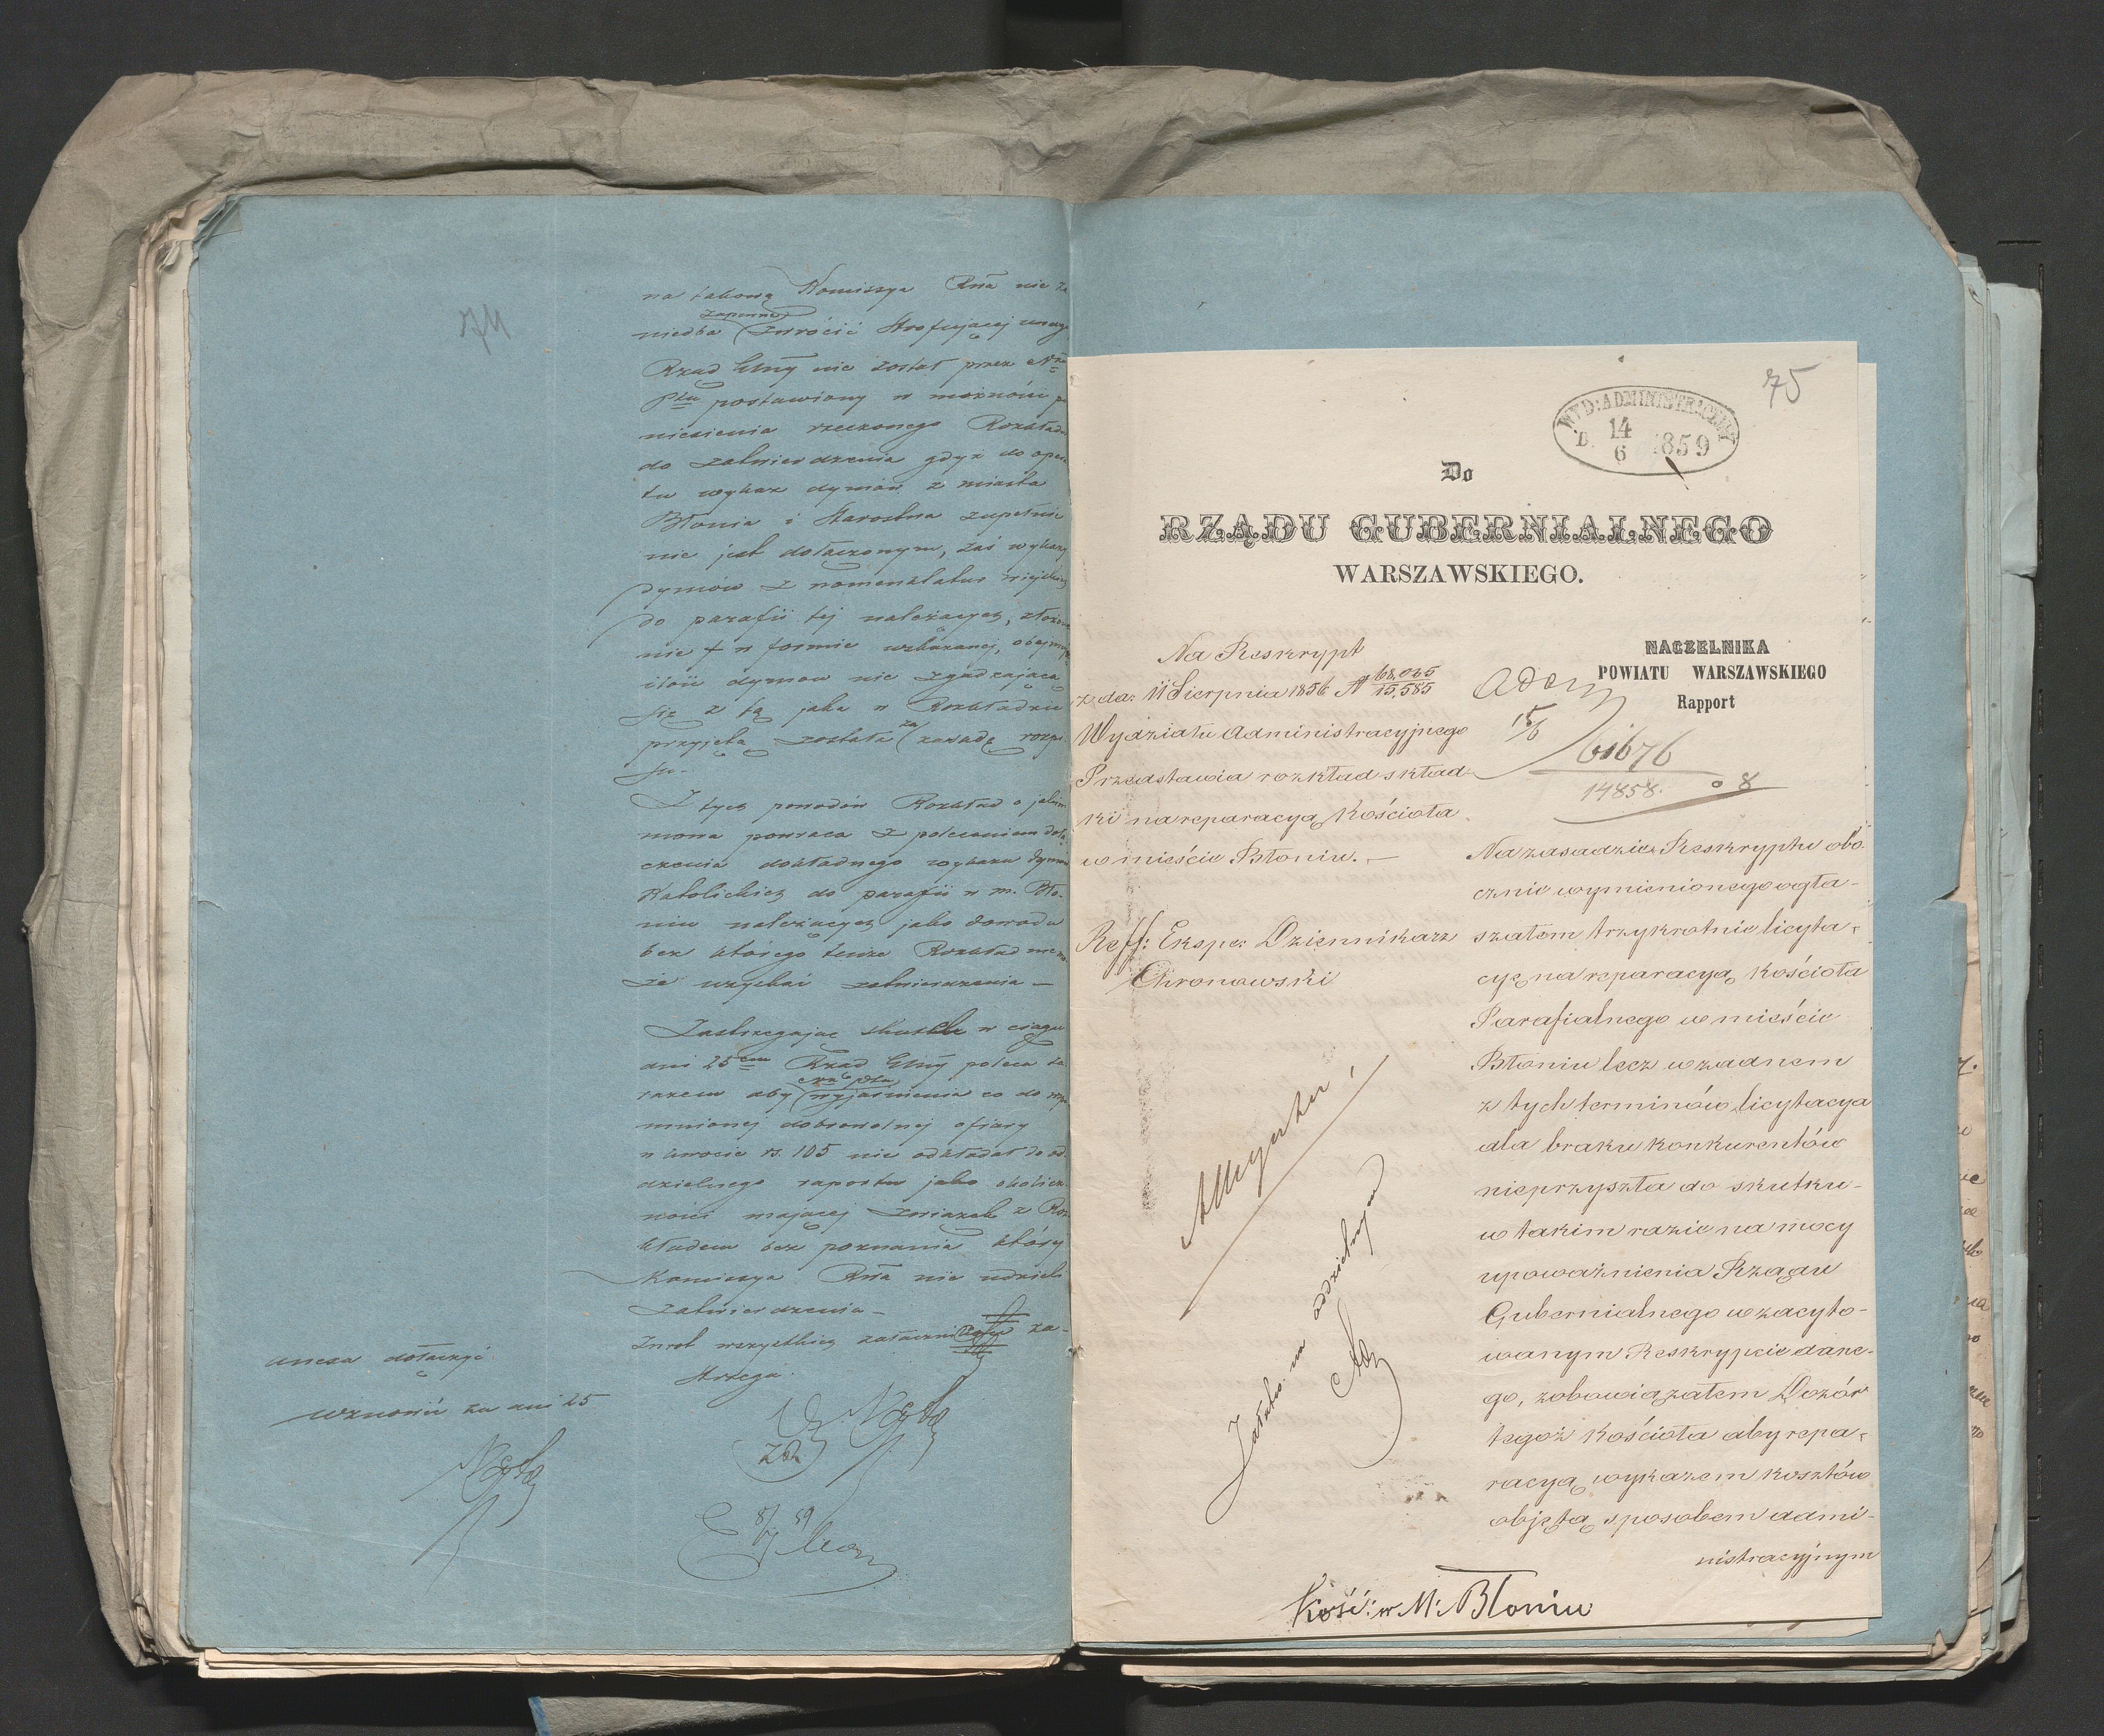 74
na takową Komissya Rna nie za
niedba zapewne zwrócić strofującej uwagi
Rząd Gbny nie został przez Nka
Ptu postawiony w możności po
niesienia rzeczonego Rozkładu
do zatwierdzenia gdyż do opera
tu wykaz dymów z miasta
Błonia i Starostwa zupełnie
nie jest dołączonym, zaś wykazy
dymów z nomenklatur wiejskich
do parafii tej należących, złożone
nie w formie wskazanej, obejmują
ilość dymow nie zgadzającą
się z tą jaka w Rozkładzie
przyjętą została za zasadę rozpi
su.
Z tych powodów Rozkład o jakim
mowa powraca z poleceniem dołą
czenia dokładnego wykazu dymów
Katolickich do parafii w m. Bło-
niu należących jako dowodu
bez którego tenże Rozkład nie mo
że uzyskać zatwierdzenia —
Zastrzegając skutek w ciągu
dni 25 Rząd Gbny poleca za
razem aby wyjaśnienia co do wspo
mnionej dobrowolnej ofiary
w kwocie rs. 105 nie odkładał do od
dzielnego raportu jako okolicz
ności mającej związek z Roz
kładem bez poznania który
Komissya Rna nie udzieli
zatwierdzenia —
Zwrot wszystkich załączników za-
strzega.
dołączyć
wznowić za dni 25
8/7 59
75
WYD: ADMINISTRACYJNY
D. 14/6 1859
Do
RZĄDU GUBERNIALNEGO
WARSZAWSKIEGO.
NACZELNIKA
POWIATU WARSZAWSKIEGO
Rapport
Na Reskrypt
z da: 11 Sierpnia 1856 N 68,065/15,585
Wydziału Administracyjnego
Przedstawia rozkład skład-
ki na reparacyą Kościoła
w mieście Błoniu. —
Reff: Ekspe: Dziennikarz
Chronowski
15/6
61676
14858. 8
Na zasadzie Reskryptu obo-
cznie wymienionego ogła-
szałem trzykrotnie licyta-
cyę na reparacyą Kościoła
Parafialnego w mieście
Błoniu lecz w żadnem
z tych terminów licytacya
dla braku konkurentów
nieprzyszła do skutku -
w takim razie na mocy
upoważnienia Rządu
Gubernialnego w zacyto-
wanym Reskrypcie dane-
go, zobowiązałem Dozór
tegoż Kościoła aby repa-
racyą wykazem kosztów
objętą sposobem admi-
nistracyjnym
Kość: w M: Błoniu